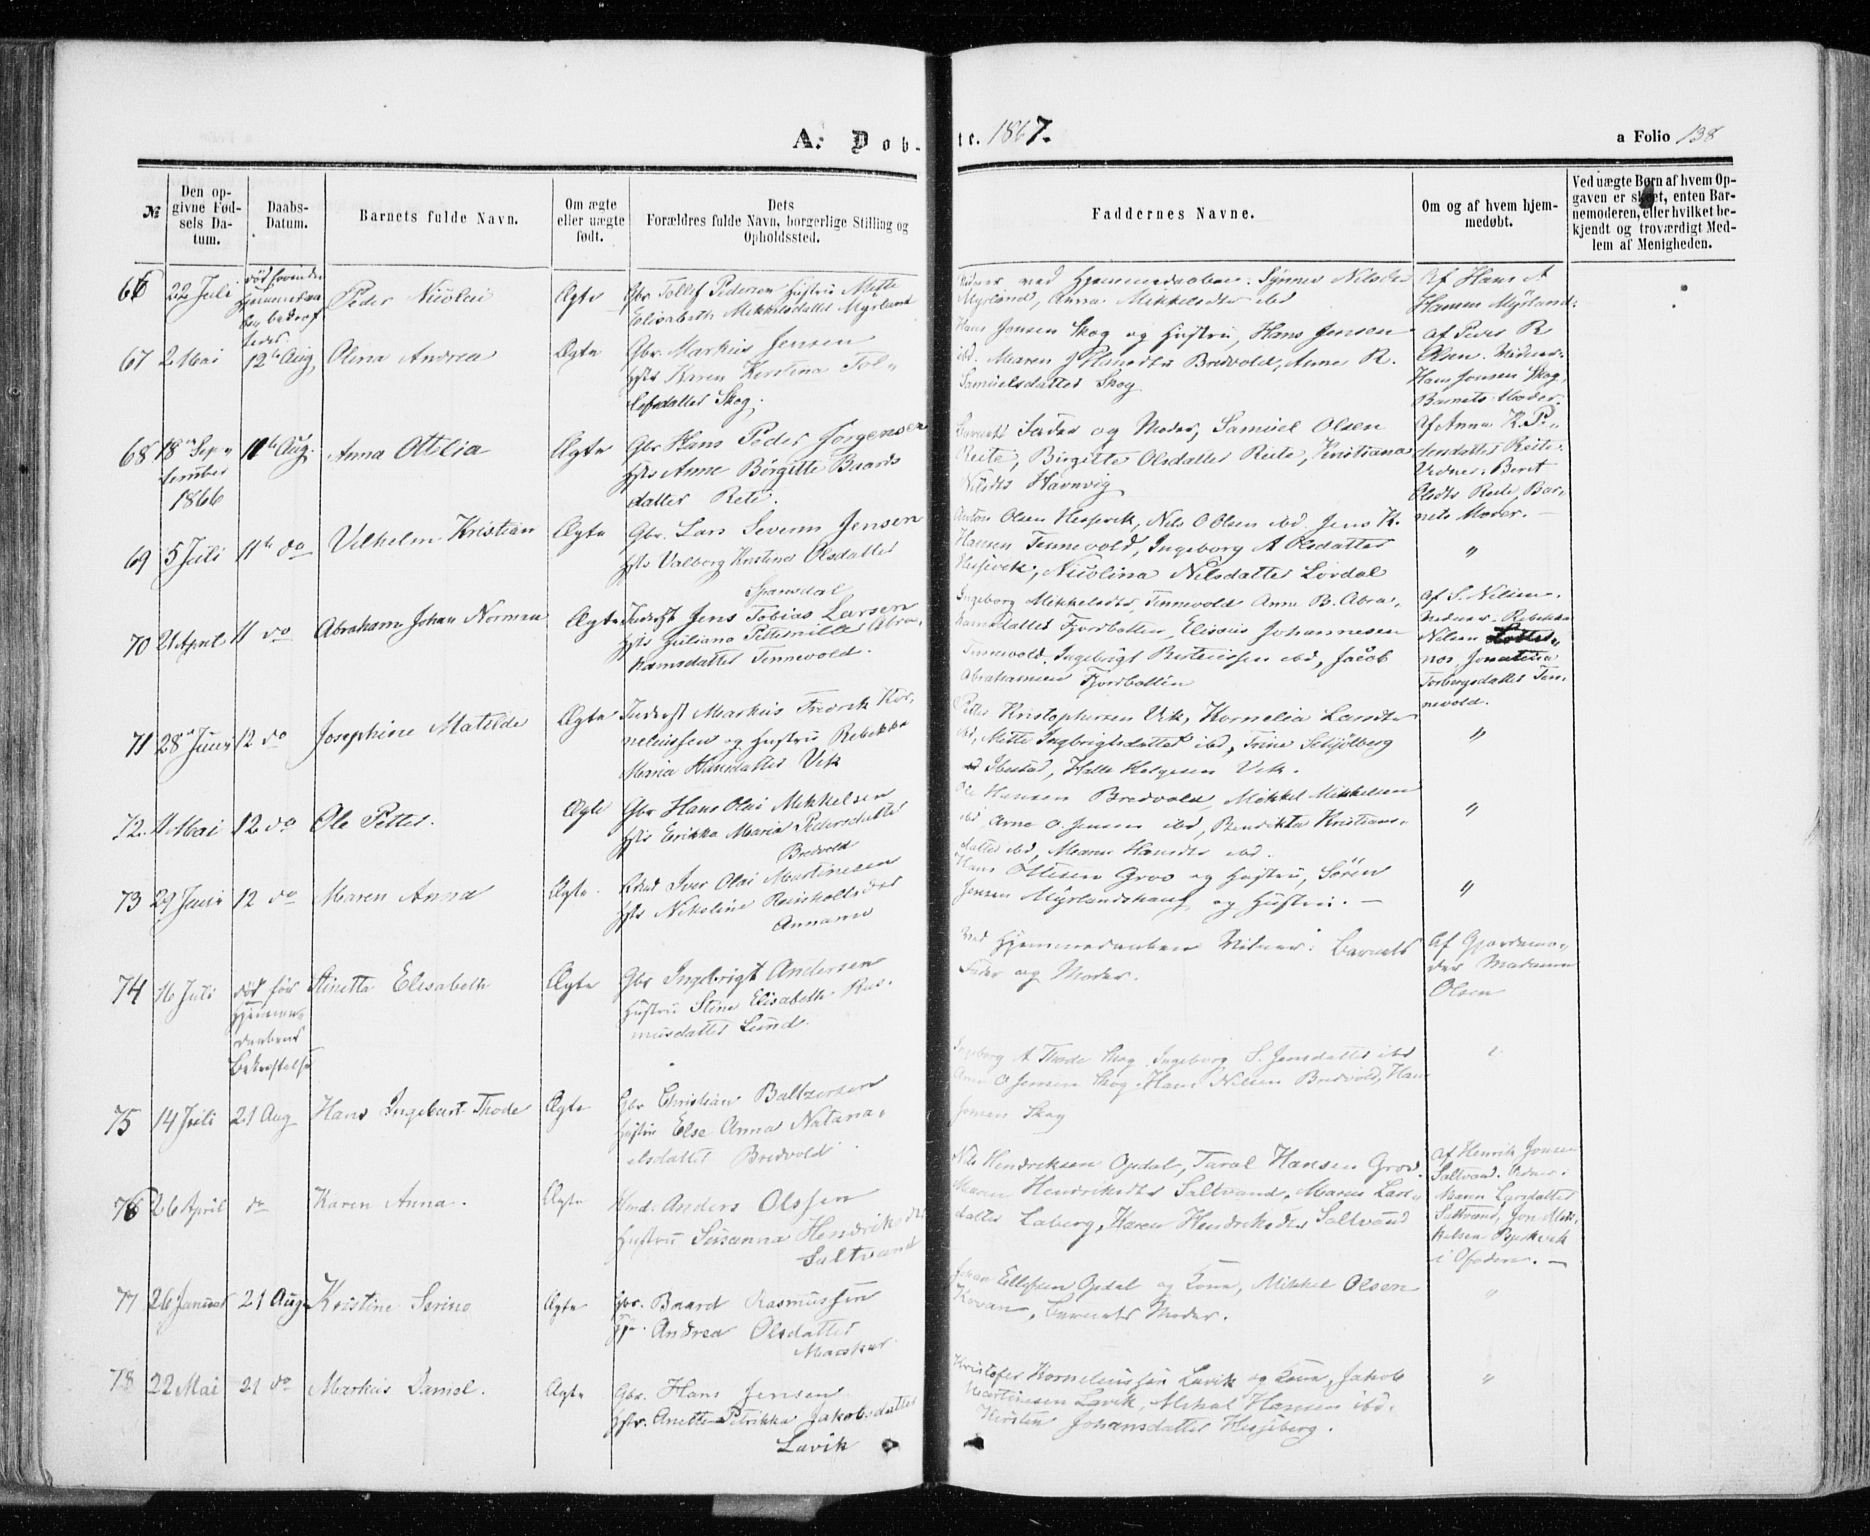 A. Dob-
te. 1867.
a Folio 138
№
Den op-
givne Fød-
sels Da-
tum.
Daabs-
Datum.
Barnets fulde Navn.
Om ægte
eller uægte
født.
Dets
Forældres fulde Navn, borgerlige Stilling og
Opholdssted.
Faddernes Navne.
Om og af hvem hjem-
medøbt.
Ved uægte Børn af hvem Op-
gaven er skeet, enten Bar-
nemoderen, eller hvilket be-
kjendt og troværdigt Med-
lem af Menigheden.
66 22 Juli død forinden
Peder Nicolai Ægte Gbr Tollef Pedersen Hustru Mette
Elisabeth Mikkelsdatter Myrland
ved Hjemmedaaben: Synner Nilsdtr
Myrland, Anna Mikkelsdtr ibd
Af Hans A
Hansen Myrland
67 2 Mai 12te Aug Olina Andrea Ægte Gbr Markus Jensen
Hstr Karen Kerstina Tol-
lefsdatter Skog.
Hans Jonsen Skog og Hustru, Hans Jensen
ibd. Maren J Hansdtr Bredvold, Anne R.
Samuelsdatter Skog
af Peder R
Olsen. Vidner:
Hans Jonsen Skog,
Barnets Moder.
68 18 Sep-
tember
1866
11te Aug. Anna Otelia Ægte Gbr Hans Peder Jørgensen
Hstr Anne Birgitte Baards
datter Rete.
Barnets Fader og Moder, Samuel Olsen
Reite, Birgitte Olsdatter Reite, Kristiana
Nilsdtr Havnvig
Af Anna K. P.
densdatter Reite.
Vidner: Berit
Olsdtr Reite, Bar-
nets Moder. -
69 5 Juli 11te do Vilhelm Kristian Ægte Gbr. Lars Severin Jensen
Hstr Valborg Kristina Olsdatter
Spansdal
Anton Olsen Hesjevik, Nils O Olsen ibd. Jens K.
Hansen Tennevold, Ingeborg A Olsdatter
Hesjevik, Nicolina Nilsdatter Lovdal
"
70 21 April 11 do Abraham Johan Norman Ægte Inderst Jens Tobias Larsen
Hstr Juliana Petternille Abra-
hamsdatter Tennevold.
Ingeborg Mikkelsdtr Tennevold Anne B. Abra-
hamsdatter Fjordbotten, Elisæus Johannesen
Tennevold, Ingebrigt Berteussen ibd, Jacob
Abrahamsen Fjordbotten
af S. Nilsen.
Vidner. Rebekka
Nilsen
Torbergsdatter Ten-
nevold.
71 28 Juni 12 do Josephine Matilde Ægte Inderst Markus Fredrik Kor-
neliussen og Hustru Rebekka
Maria Hansdatter Vik
Petter Kristophersen Vik, Kornelia Lamdtr
ibd, Mette Ingbrigtsdatter ibd, Trine Schjølberg
Ibestad, Halte Helgesen Vik.
"
72. 4 Mai 12 do Ole Petter. Ægte Gbr Hans Olai Mikkelsen
Hstr Erikka Maria Pedersdatter
Bredvold
Ole Hansen Bredvold, Mikkel Mikkelsen
ibd, Arne O. Jensen ibd, Bendikta Kristians-
datter ibd, Maren Hansdtr ibd.
"
73 29 Juni 12 do Maren Anna Ægte Iver Olai Martinesen
Hstr Nikoline Reinholtsdtr
Annamo
Hans Ottesen Grov og Hustru, Søren
Jensen Myrlandshaug og Hustru. -
"
74 16 Juli død før
Hjemme-
daabens
Bekræftelse
Stinetta Elisabeth Ægte Gbr Ingebrigt Andersen
Hustru Stine Elisabeth Ras-
musdatter Lund.
Ved Hjemmedaaben Vidner: Barnets
Fader og Moder.
Af Gjordemo-
der Madame
Olsen
75 14 Juli 21 Aug Hans Ingebart Thode Ægte Gbr Christian Baltzersen
Hustru Else Anna Natana-
elsdatter Bredvold
Ingeborg A Thode Skog, Ingeborg S. Jensdatter ibd
Arne O Jensen Skog. Hans Nilsen Bredvold, Hans
Jonsen Skog
76 26 April do Karen Anna. Ægte Anders Olssen
Hustru Susanna Hendriksdtr
Saltvand
Nils Hendriksen Opdal, Taral Hansen Grov
Maren Hendriksdtr Saltvand, Maren Lars-
datter Laberg, Karen Hendriksdtr Saltvand
af Henrik Jonsen
Saltvand. Vidner:
Maren Larsdatter
Saltvand, Jon Mik-
kelsen
i Ofoden. -
77 26 Januar 21 Aug Kristine Serine Ægte Gbr. Baard Rasmussen
Andrea Olsdatter
Johan Ellefsen Opdal og Kone, Mikkel Olsen
Kovan, Barnets Moder.
"
78 22 Mai 21 do Markus Daniel. Ægte Gbr. Hans Jensen
Hstr. Anette Petrikka Jakobsdatter
Lavik
Kristofer Korneliussen Lavik og Kone, Jakob
Martinesen Lavik, Mikal Hansen ibd.
Kirsten Johansdatter Hesjeberg.
"